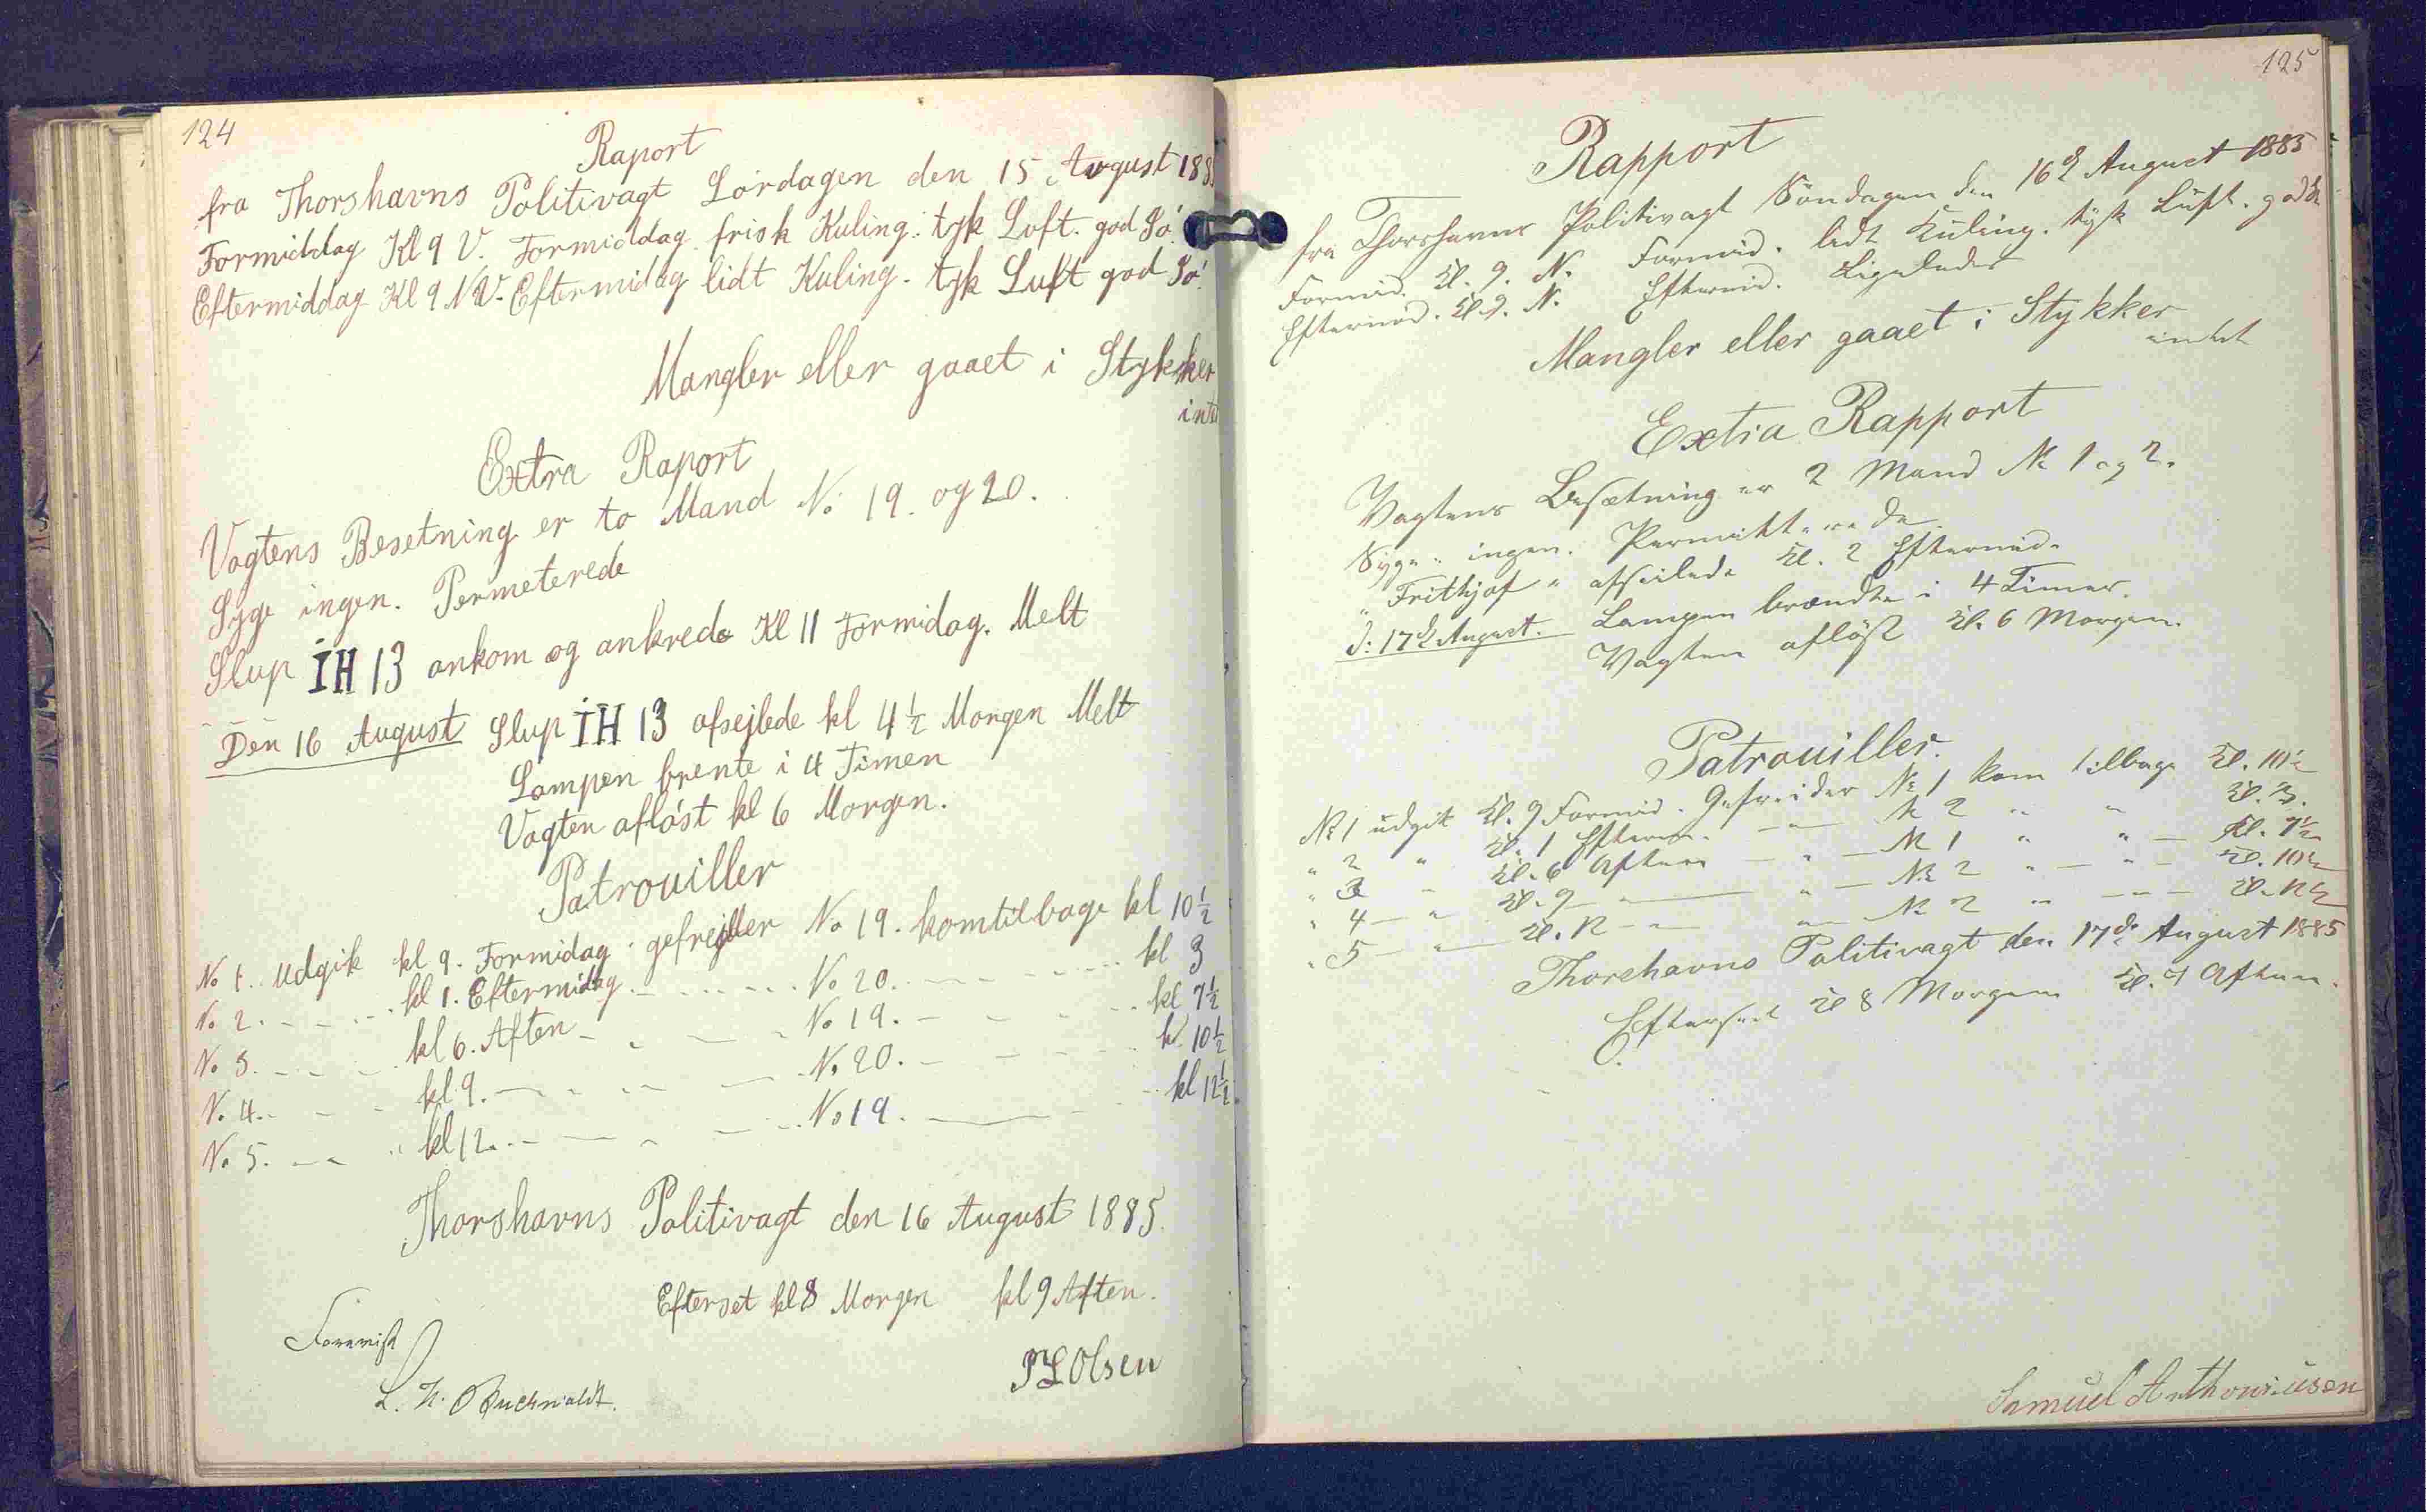 124
Raport
fra Thorshavns Politivagt Lørdagen den 15 August 188
Formiddag Kl 9 V. Formiddag frisk Kuling. tyk Luft. god Sö.
Eftermiddag Kl 9 NV. Eftermidag lidt Kuling. tyk Luft god Sö.
Mangler eller gaaet i Stykker
inte
Extra Raport
Vagtens Besetning er to Mand No 19. og 20.
Syge ingen. Permeterede
Slup IH 13 ankom og ankrede Kl 11 Formidag. Melt
Den 16 August Slup IH 13 afsejlede kl 4 1/2 Morgen Melt
Lampen brente i 4 Timen
Vagten afløst kl 6 Morgen.
Patrouiller
No 1. udgik kl 9. Formidag gefrejder No 19. kom tilbage kl 10 1/2
No 2. - - - kl 1. Eftermidag. - - - No 20. - - - kl 3
No 3. - - - kl 6. Aften - - - No 19. - - - kl 7 1/2
No 4. - - - kl 9. - - - No 20. - - - kl 10 1/2
No 5. - - " kl 12. - - - No 19. - - - kl 12 1/2
Thorshavns Politivagt den 16 August 1885.
Efterset kl 8 Morgen kl 9 Aften.
Forevist
L. H. Buchwaldt.
Olsen
125
Rapport
fra Thorshavns Politivagt Söndagen den 16d August 1885
Formid. Kl. 9. N. Formid. lidt Kuling. tyk Luft. god
Eftermid. Kl 9. N. Eftermid. Ligeledes
Mangler eller gaaet i Stykker
intet
Extra Rapport
Vagtens Besætning er 2 Mand No 1 og 2.
Syge " ingen. Permitterede
" Frithjof " afseilede Kl. 2 Eftermid.
d: 17de August. Lampen brændte i 4 Timer.
Vagten aflöst Kl. 6 Morgen.
Patrouiller.
No 1 udgik Kl. 9 Formid. Gefreider No 1 kom tilbage Kl. 10 1/2
" 2 " Kl. 1 Efterm. - " - No 2 " " Kl. 3.
" 3 " Kl. 6 Aften - " - No 1 " " - Kl. 7 1/2
" 4 - " Kl. 9 - " - No 2 " - " - Kl. 10 1/2
" 5 - " - Kl. 12 - " - No 2 " - - Kl. 12 1/2
Thorshavns Politivagt den 17de August 1885
Efterset Kl 8 Morgen Kl. 9 Aften.
Samuel Anthoniusen